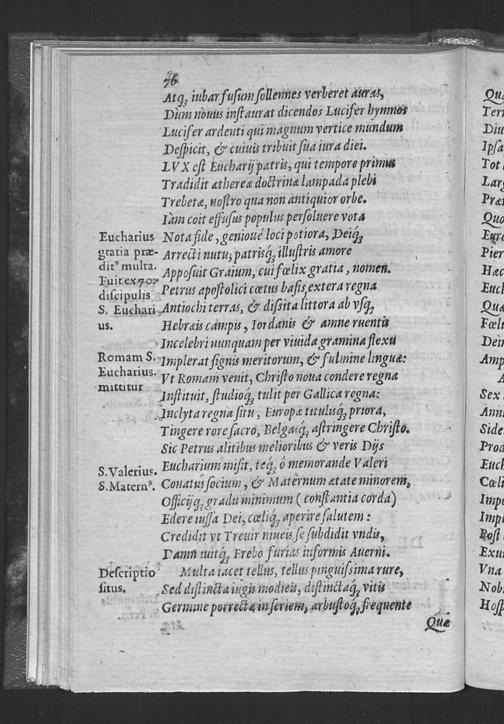 76
Atq́; iubar fusum sollennes verberet auras,
Dum nouus instaurat dicendos Lucifer hymnos
Lucifer ardenti qui magnum vertice mundum
Despicit, & cuiuis tribuit sua iura diei.
LVX est Eucharij patris, qui tempore primus
Tradidit æthereæ doctrinæ lampada plebi
Trebetæ, nostro qua non antiquior orbe.
Iam coit effusus populus persoluere vota
Eucharius Nota fide, genioue loci potiora, Deiq́;
gratia præ- Arrecti nutu, patrisq́; illustris amore
dit⁹ multa. Apposuit Graium, cui fœlix gratia, nomen.
Fuit ex 70: Petrus apostolici cœtus basis extera regna
discipulis Antiochi terras, & dissita littora ab vsq́;
S. Euchari Hebrais campis, Iordanis & amne ruentis
us. Incelebri nunquam per viuida gramina flexu
Romam S. Implerat signis meritorum, & fulmine linguæ:
Eucharius. Vt Romam venit, Christo noua condere regna
mittitur Instituit, studioq́; tulit per Gallica regna:
Inclyta regna situ, Europæ tituluśq́; priora,
Tingere rore sacro, Belgaśq́; astringere Christo.
Sic Petrus alitibus melioribus & veris Dijs
S. Valerius. Eucharium misit, teq́; ò memorande Valeri
S. Matern⁹. Conatui socium, & Maternum ætate minorem,
Officijq́; gradu minimum (constantia corda)
Edere iussa Dei, cœliq́; aperire salutem:
Credidit vt Treuir niueis se subdidit vndis,
Damnauitq́; Erebo furias informis Auerni.
Descriptio Multa iacet tellus, tellus pinguissima rure,
situs. Sed distincta iugis modicis, distinctaq́; vitis
Germine porrecta in seriem, arbustoq́; frequente
Quæ